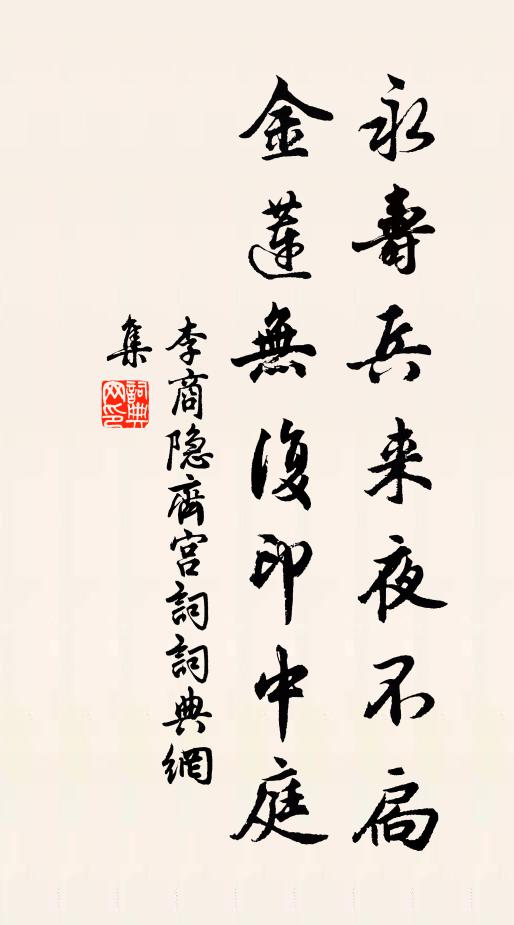 永壽兵来夜不扃
金蓮無復印中庭
李商隐齊宫詞詞典網
集
詞典网印